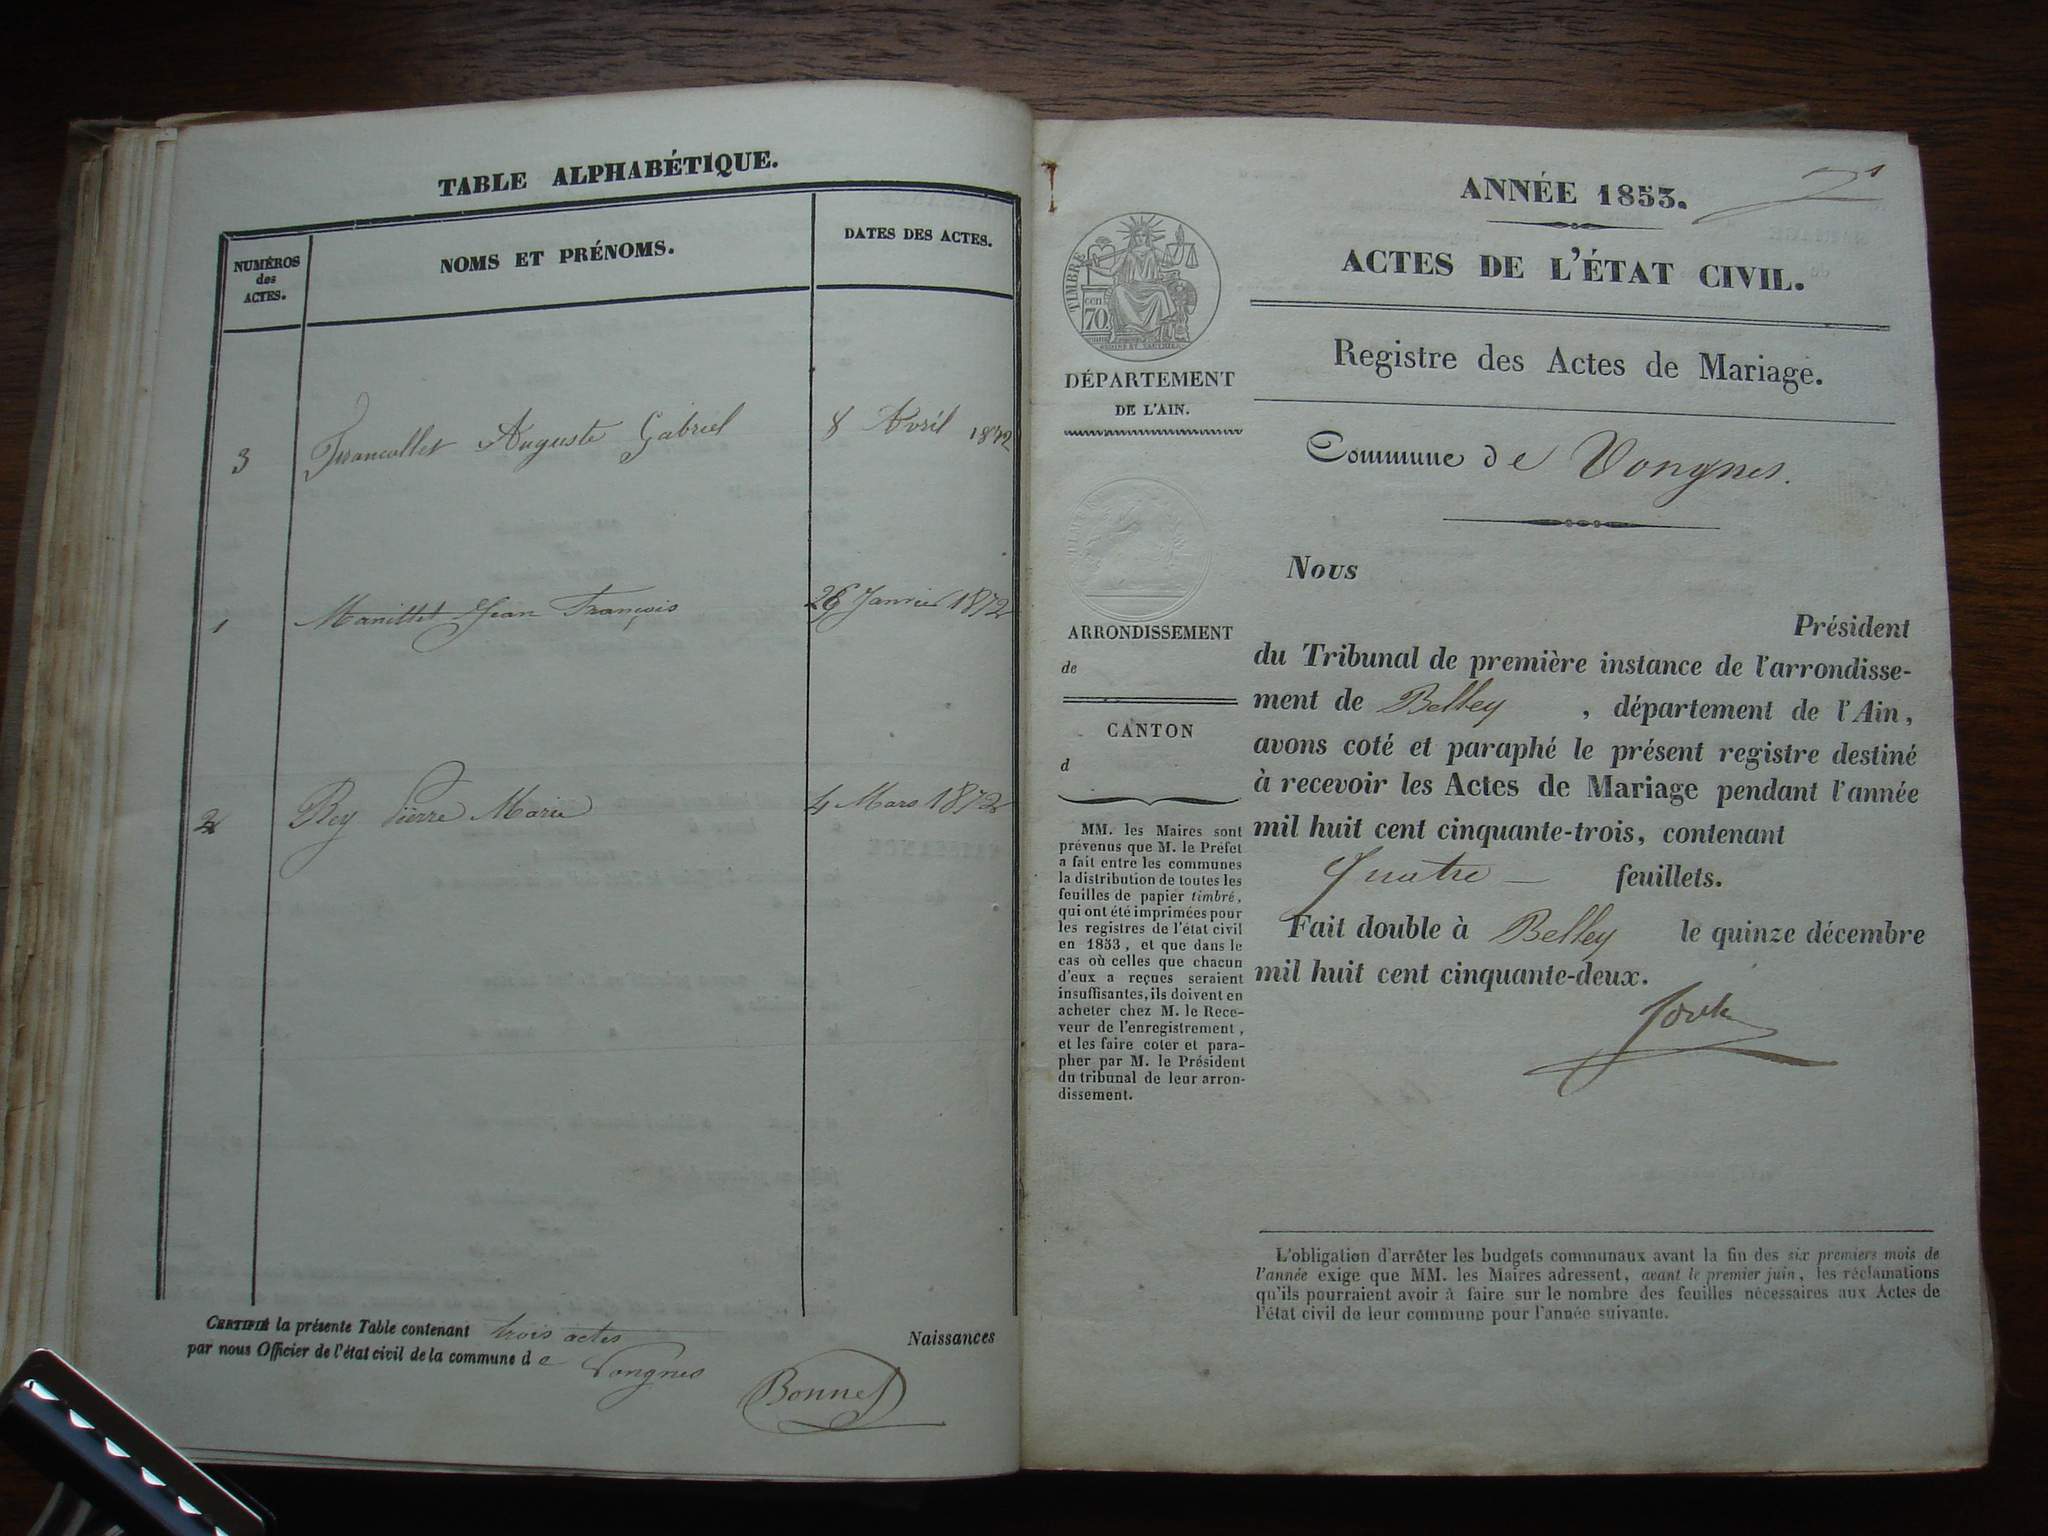 TABLE ALPHABÉTIQUE.
NUMÉROS
des
ACTES.
NOMS ET PRÉNOMS.
DATES DES ACTES.
3 Francollet Auguste Gabriel 8 Avril 1872
1 Manillet Jean François 26 Janvier 1872
2 Rey Pierre Marie 4 Mars 1872
CERTIFIÉ la présente Table contenant trois actes
par nous Officier de l'état civil de la commune de Vongnes
Naissances
Bonnet
ANNÉE 1853.
ACTES DE L'ÉTAT CIVIL.
Registre des Actes de Mariage.
Commune de Vongnes.
TIMBRE
cen
70
DÉPARTEMENT
DE L'AIN.
ARRONDISSEMENT
de
CANTON
d
MM. les Maires sont
prévenus que M. le Préfet
a fait entre les communes
la distribution de toutes les
feuilles de papier timbré,
qui ont été imprimées pour
les registres de l'état civil
en 1853, et que dans le
cas où celles que chacun
d'eux a reçues seraient
insuffisantes, ils doivent en
acheter chez M. le Rece-
veur de l'enregistrement,
et les faire coter et para-
pher par M. le Président
du tribunal de leur arron-
dissement.
Nous
Président
du Tribunal de première instance de l'arrondisse-
ment de Belley , département de l'Ain,
avons coté et paraphé le présent registre destiné
à recevoir les Actes de Mariage pendant l'année
mil huit cent cinquante-trois, contenant
quatre — feuillets.
Fait double à Belley le quinze décembre
mil huit cent cinquante-deux.
L'obligation d'arrêter les budgets communaux avant la fin des six premiers mois de
l'année exige que MM. les Maires adressent, avant le premier juin, les réclamations
qu'ils pourraient avoir à faire sur le nombre des feuilles nécessaires aux Actes de
l'état civil de leur commune pour l'année suivante.